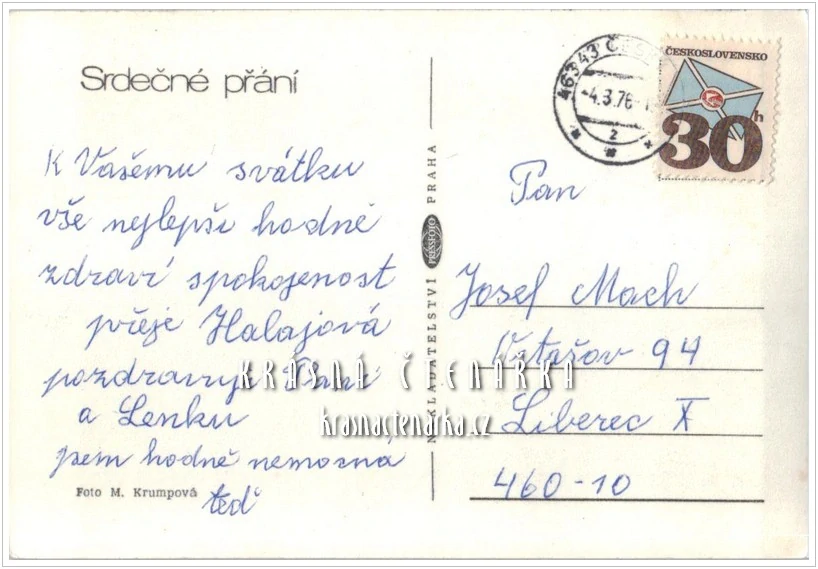 Srdečné přání
K Vašemu svátku
vše nejlepší hodně
zdraví spokojenost
přeje Halajová
pozdravuji Paní
a Lenku
jsem hodně nemocná
teď
Foto M. Krumpová
NAKLADATELSTVÍ PRESSFOTO PRAHA
46343 ČES
-4.3.76-1
z
ČESKOSLOVENSKO
30h
Pan
Josef Mach
94
Liberec X
460-10
KRÁSNÁ ČTENÁŘKA
krasnactenarka.cz